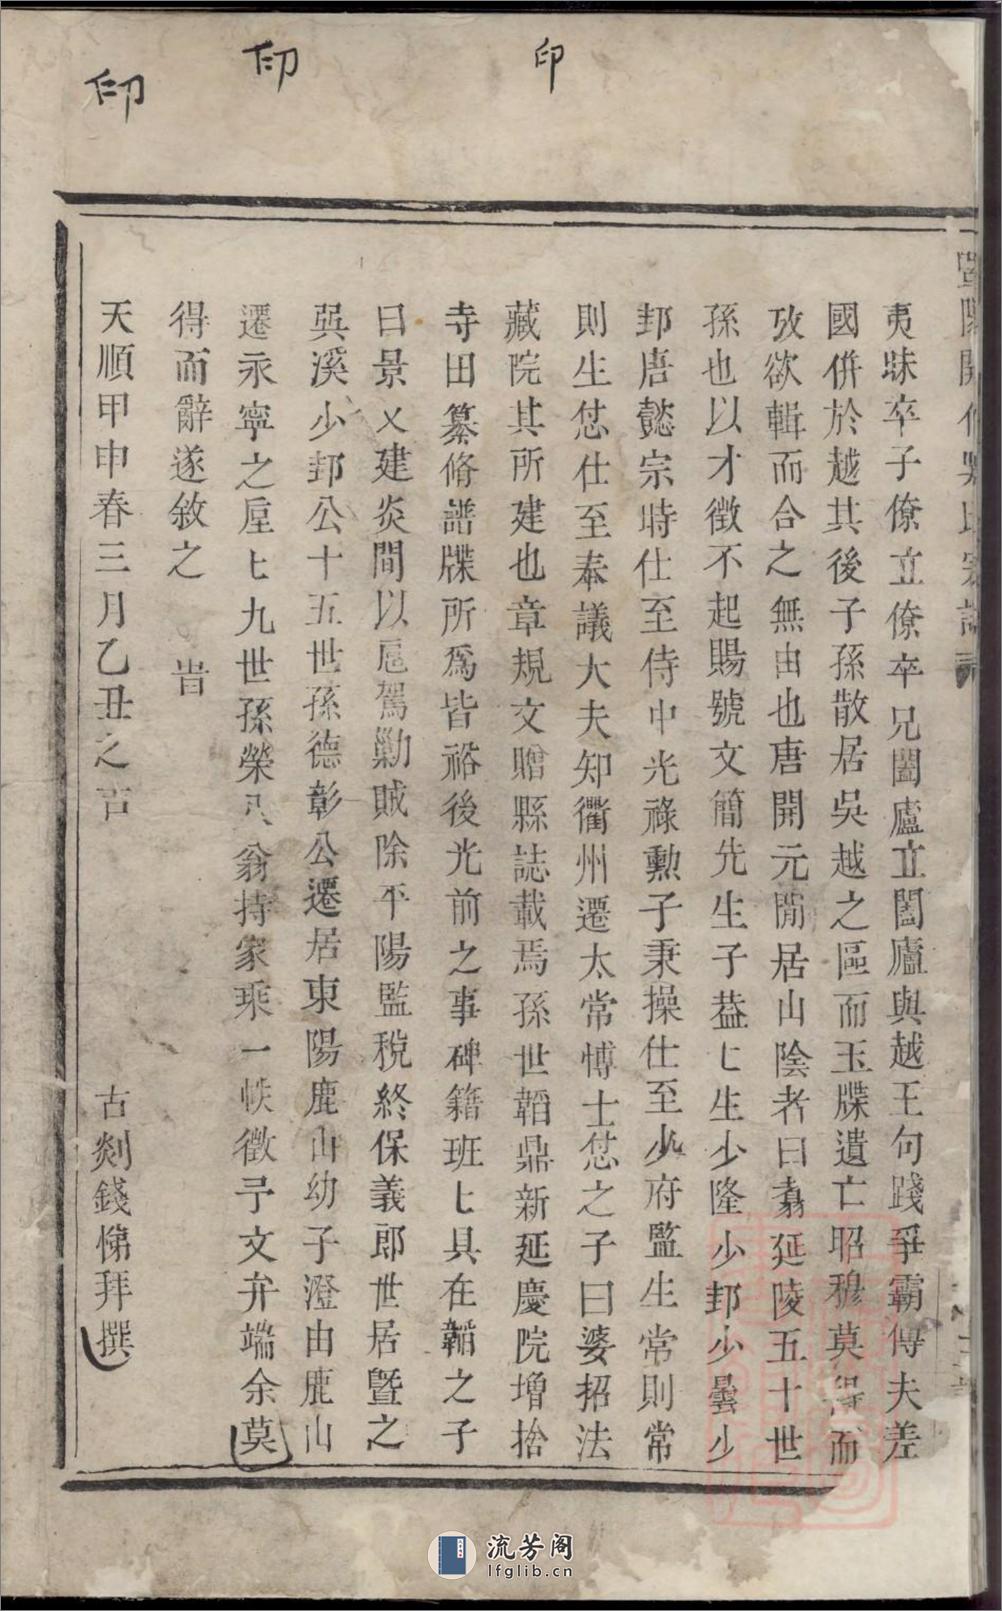 夷昧卒子僚立僚卒兄闔廬立闔廬與越王句踐爭霸傳夫差
國併於越其後子孫散居吳越之區而玉牒遺亡昭穆莫得而
攷欲輯而合之無由也唐開元閒居山陰者曰翥延陵五十世
孫也以才徵不起賜號文簡先生子益七生少隆少邽少曇少
邽唐懿宗時仕至侍中光祿勳子秉操仕至少府監生常則常
則生愆仕至奉議大夫知衢州遷太常博士愆之子曰婆招法
藏院其所建也章規文贈縣誌載焉孫世韜鼎新延慶院增捨
寺田纂脩譜牒所爲皆裕後光前之事碑籍班七具在韜之子
曰景乂建炎間以扈駕勦賊除平陽監稅終保義郎世居暨之
吳溪少邽公十五世孫德彰公遷居東陽鹿山幼子澄由鹿山
遷永寧之厔七九世孫榮八翁持家乘一帙徵予文弁端余莫
得而辭遂敘之 旹
天順甲申春三月乙丑之吉 古剡錢悌拜撰
印 印 印
流芳阁
lfglib.cn